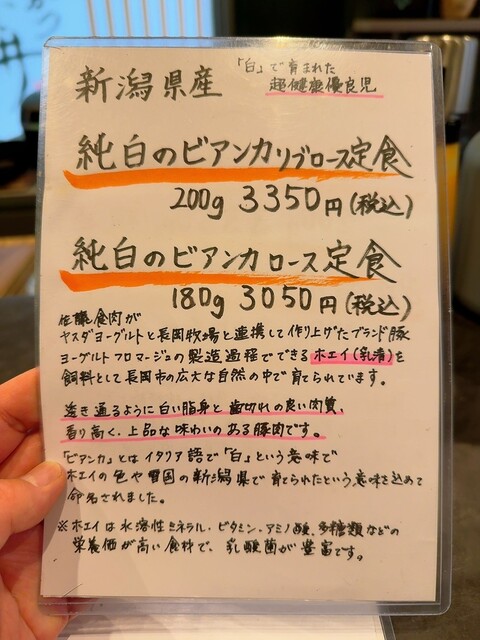 新潟県産
「白」で育まれた
超健康優良児
純白のビアンカリブロース定食
200g 3350円(税込)
純白のビアンカロース定食
180g 3050円(税込)
佐藤食肉が
ヤスダヨーグルトと長岡牧場と連携して作り上げたブランド豚
ヨーグルトフロマージュの製造過程でできるホエイ(乳清)を
飼料として長岡市の広大な自然の中で育てられています。
透き通るように白い脂身と歯切れの良い肉質、
香り高く、上品な味わいのある豚肉です。
「ビアンカ」とはイタリア語で「白」という意味で
ホエイの色や雪国の新潟県で育てられたという意味を込めて
命名されました。
※ホエイは水溶性ミネラル・ビタミン・アミノ酸、多糖類などの
栄養価が高い食料で、乳酸菌が豊富です。